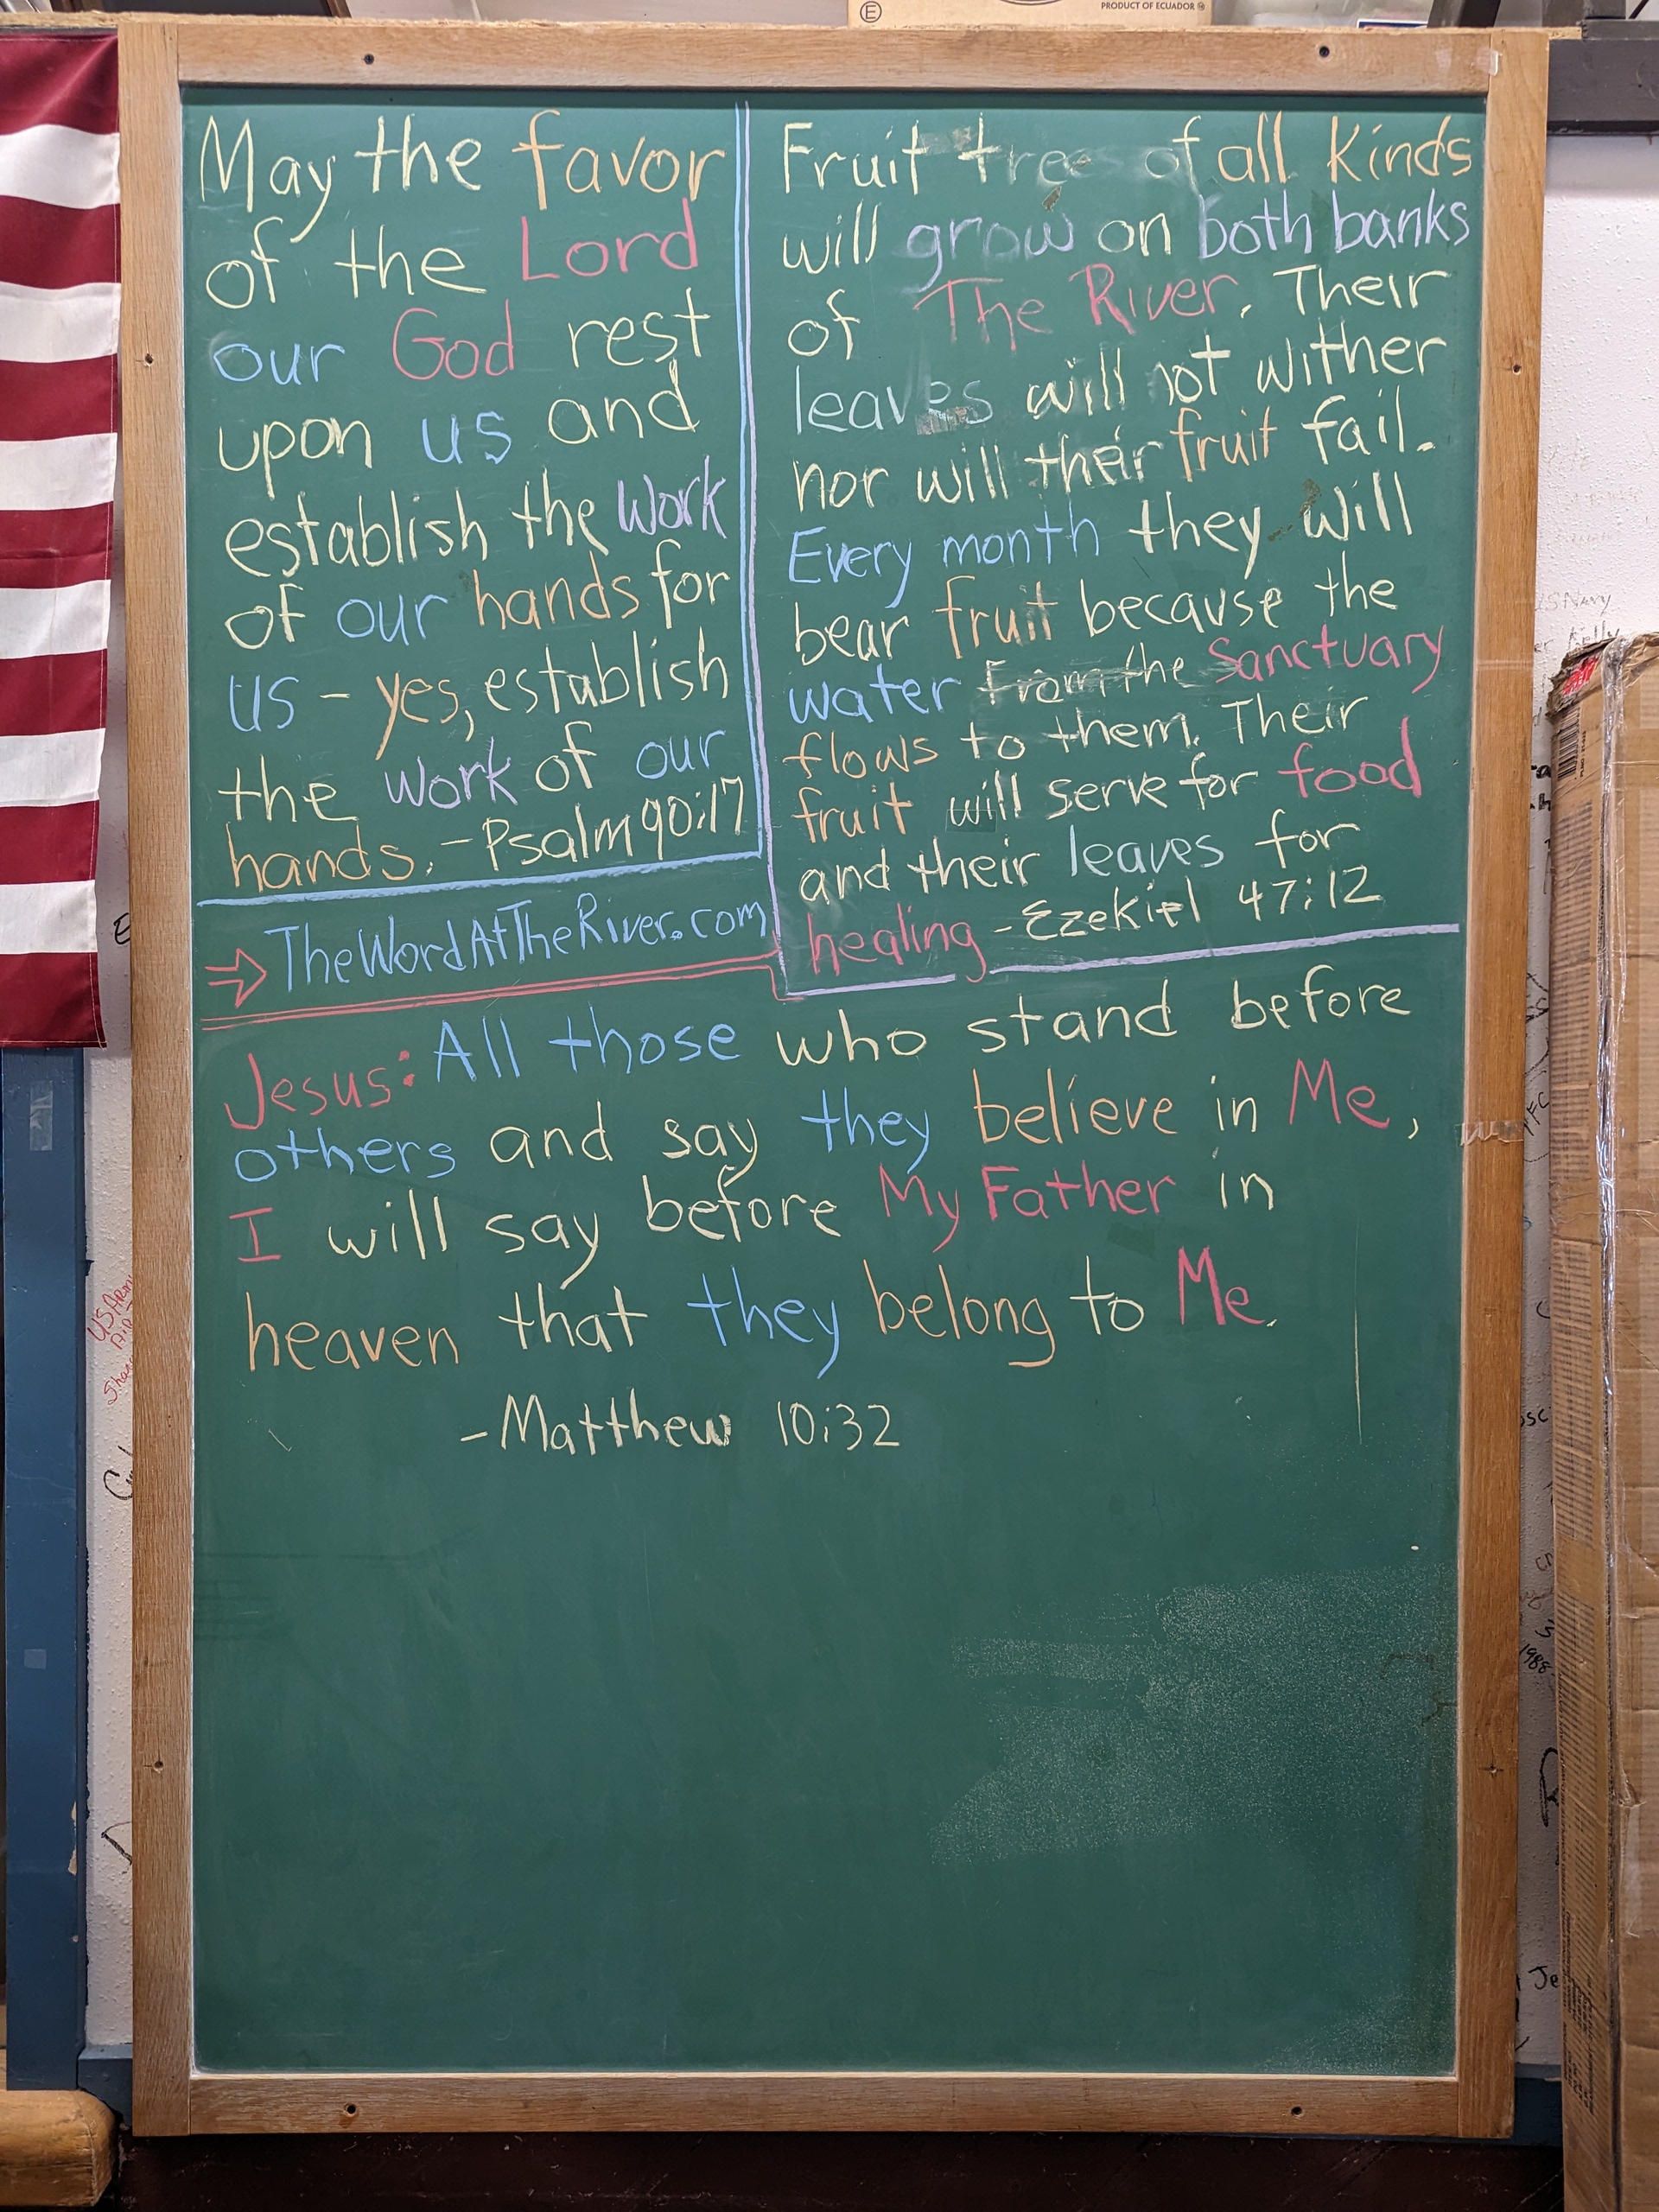 PRODUCT OF ECUADOR
May the favor
of the Lord
our God rest
upon us and
establish the work
of our hands for
us - yes, establish
the work of our
hands. - Psalm 90:17
Fruit trees of all Kinds
will grow on both banks
of The River. Their
leaves will not wither
nor will their fruit fail.
Every month they will
bear fruit because the
water from the Sanctuary
flows to them. Their
fruit will serve for food
and their leaves for
healing - Ezekiel 47:12
→ TheWordAtTheRiver.com
Jesus: All those who stand before
others and say they believe in Me,
I will say before My Father in
heaven that they belong to Me.
- Matthew 10:32
US Navy
Kelly
US Army
1988